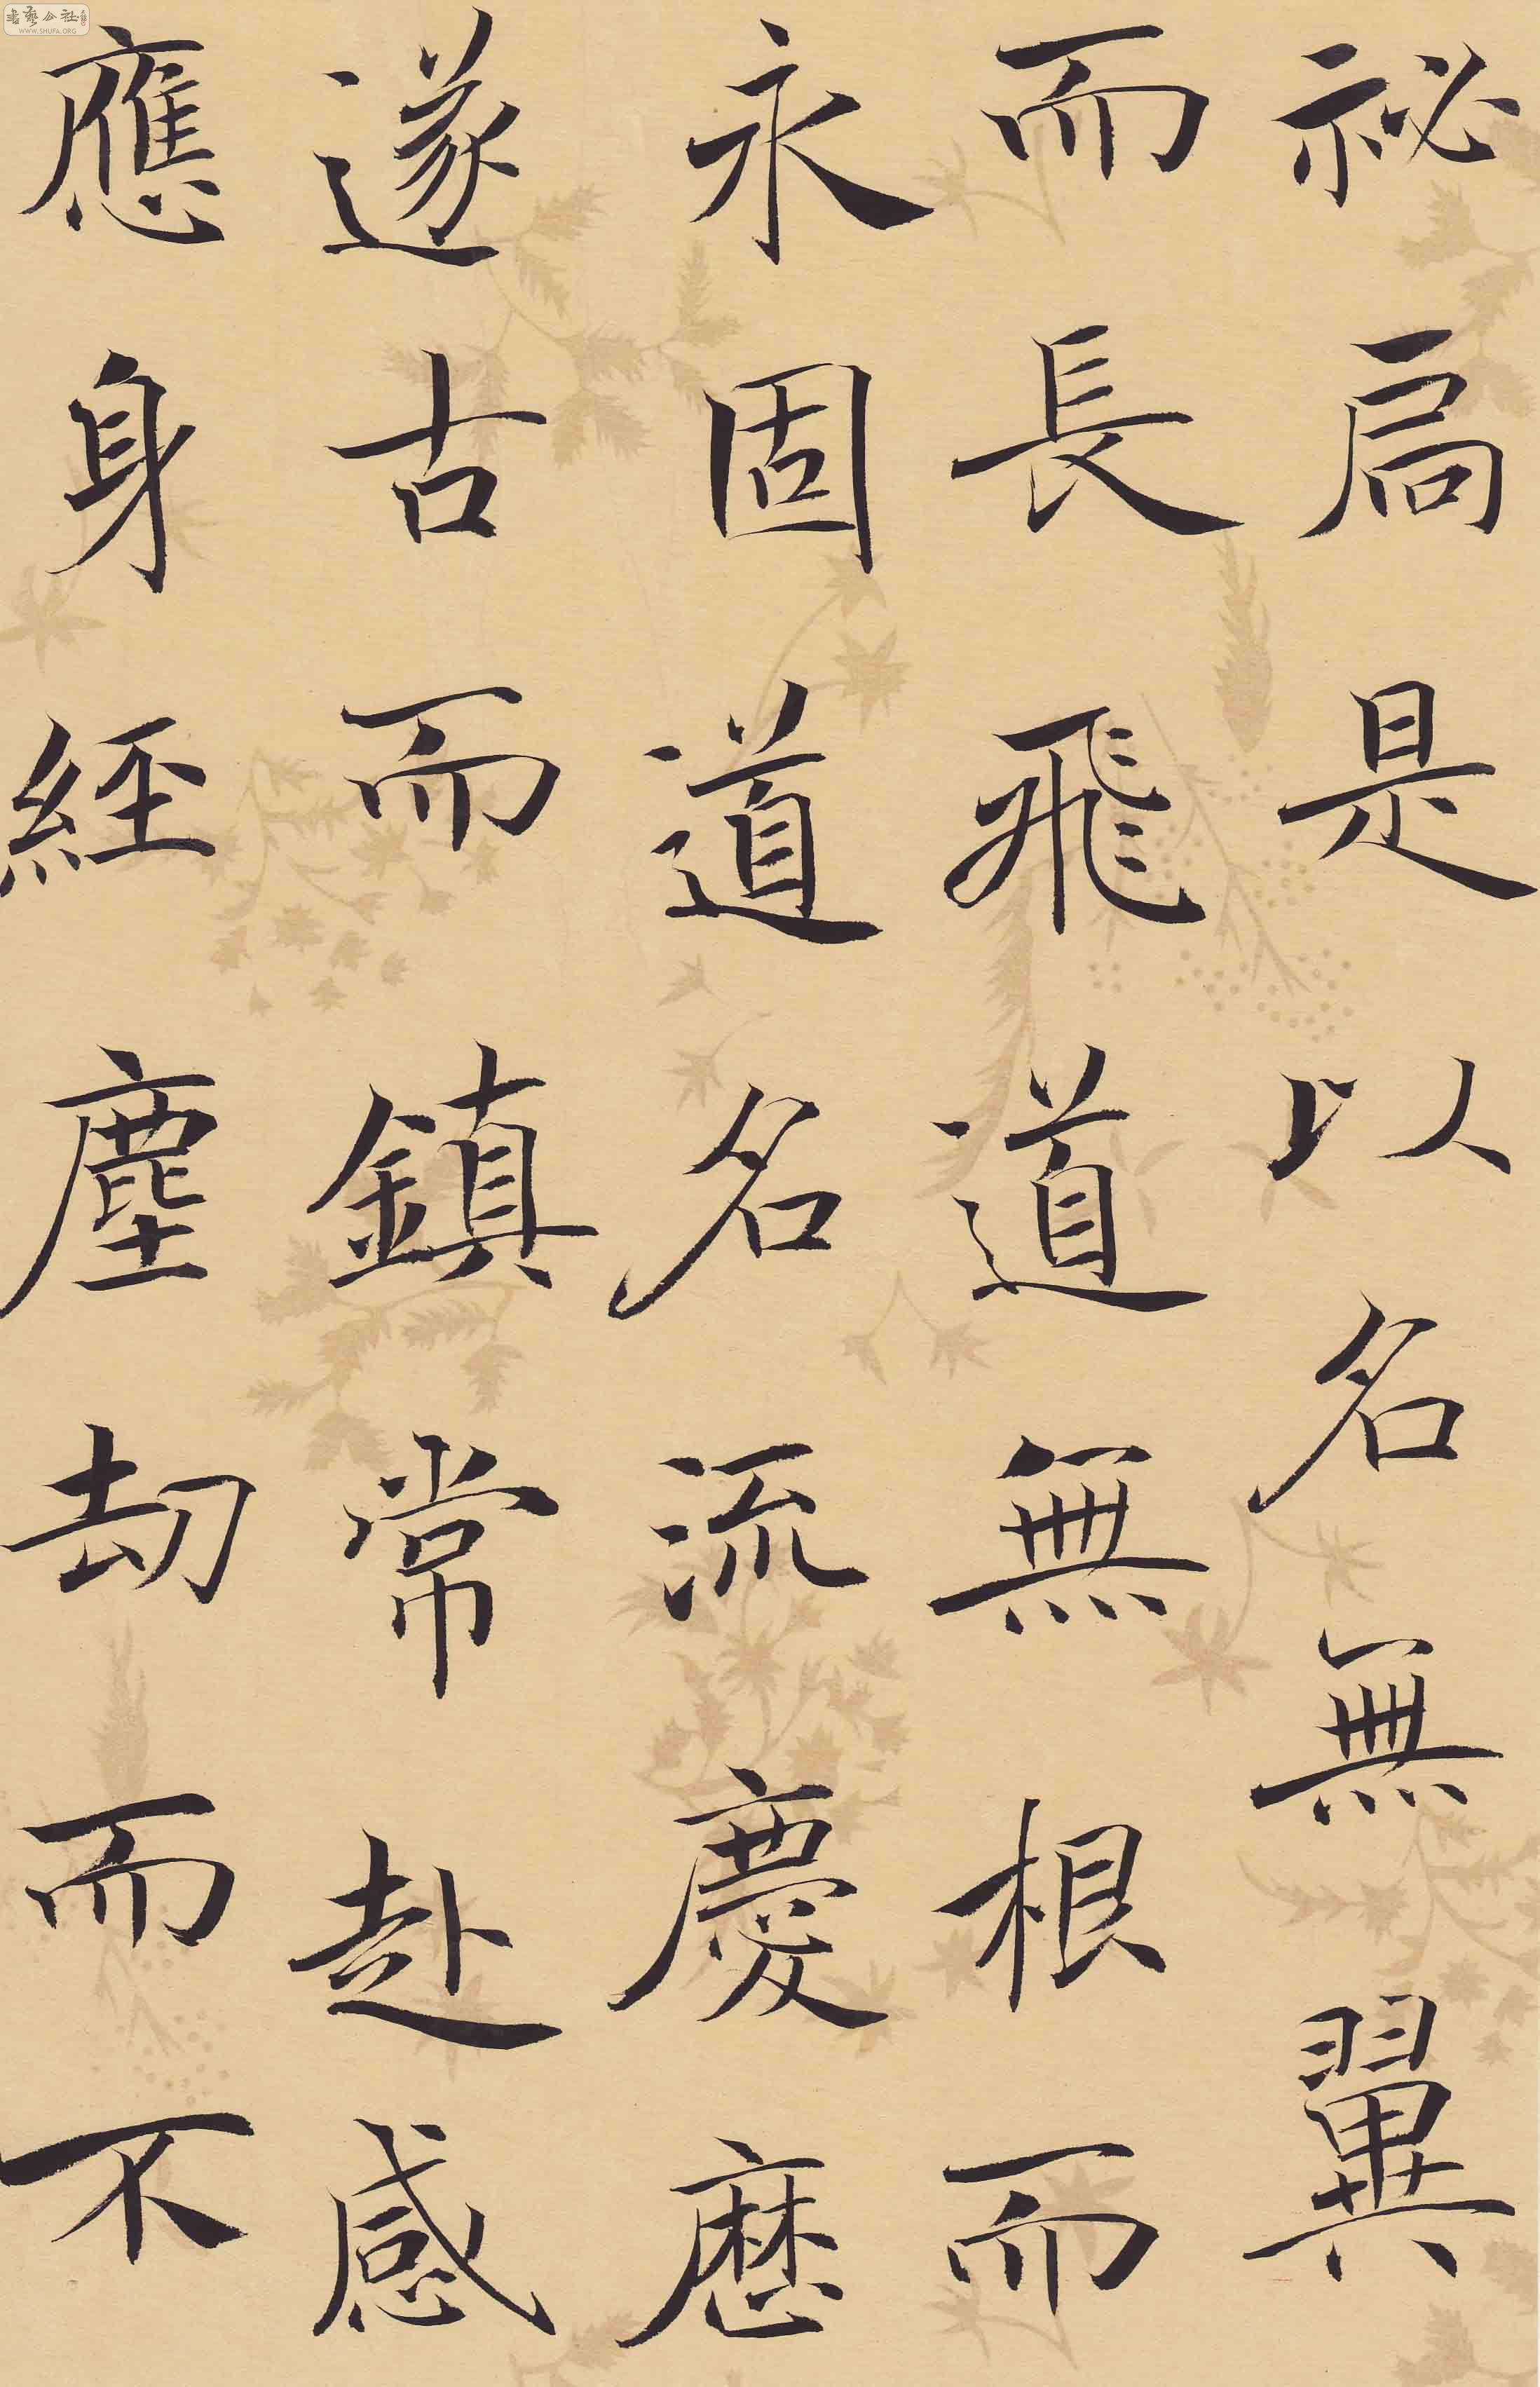 祕扃是以名無翼
而長飛道無根而
永固道名流慶歷
遂古而鎮常赴感
應身經塵劫而不
書藝公社
WWW.SHUFA.ORG